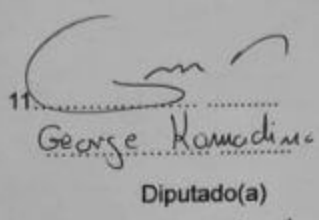 11........................
George Kamadina
Diputado(a)